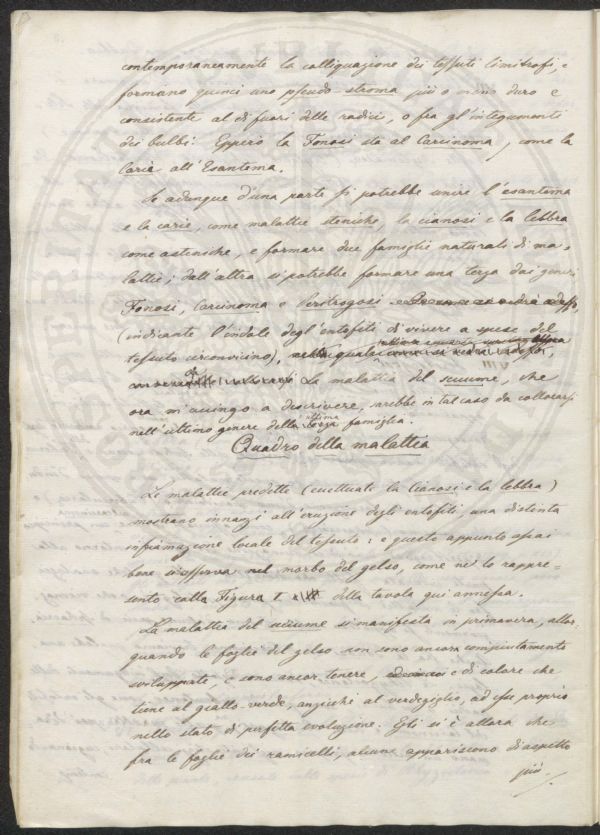 contemporaneamente la colliquazione dei tessuti limitrofi, e
formano quinci uno pseudo-stroma più o meno duro e
consistente al di fuori delle radici, o fra gl'integumenti
dei bulbi. Epperò la Fonosi sta al Carcinoma, come la
Carie all'Esantema.
Se adunque d'una parte si potrebbe unire l'esantema
e la carie, come malattie steniche, la cianosi e la lebbra
come asteniche, e formare due famiglie naturali di ma-
lattie; dall'altra si potrebbe formare una terza dai generi
Fonosi, Carcinoma e
(indicante l'indole degl'entofiti di vivere a spese del
tessuto circonvicino),
La malattia del seccume, che
ora m'accingo a descrivere, sarebbe in tal caso da collocarsi
nell'ultimo genere della famiglia.
Quadro della malattia
Le malattie predette (eccettuate la Cianosi e la lebbra)
mostrano innanzi all'eruzione degli entofiti, una distinta
infiammazione locale del tessuto: e questo appunto assai
bene si osserva nel morbo del gelso, come ne lo rappre-
sento colla Figura 1 della tavola qui annessa.
La malattia del seccume si manifesta in primavera, allor-
quando le foglie del gelso non sono ancora compiutamente
sviluppate, e sono ancor tenere, e di colore che
tiene al giallo-verde, anzichè al verdegiglio, ad esse proprio
nello stato di perfetta evoluzione. Egli si è allora che
fra le foglie dei ramicelli, alcune appariscono di aspetto
più